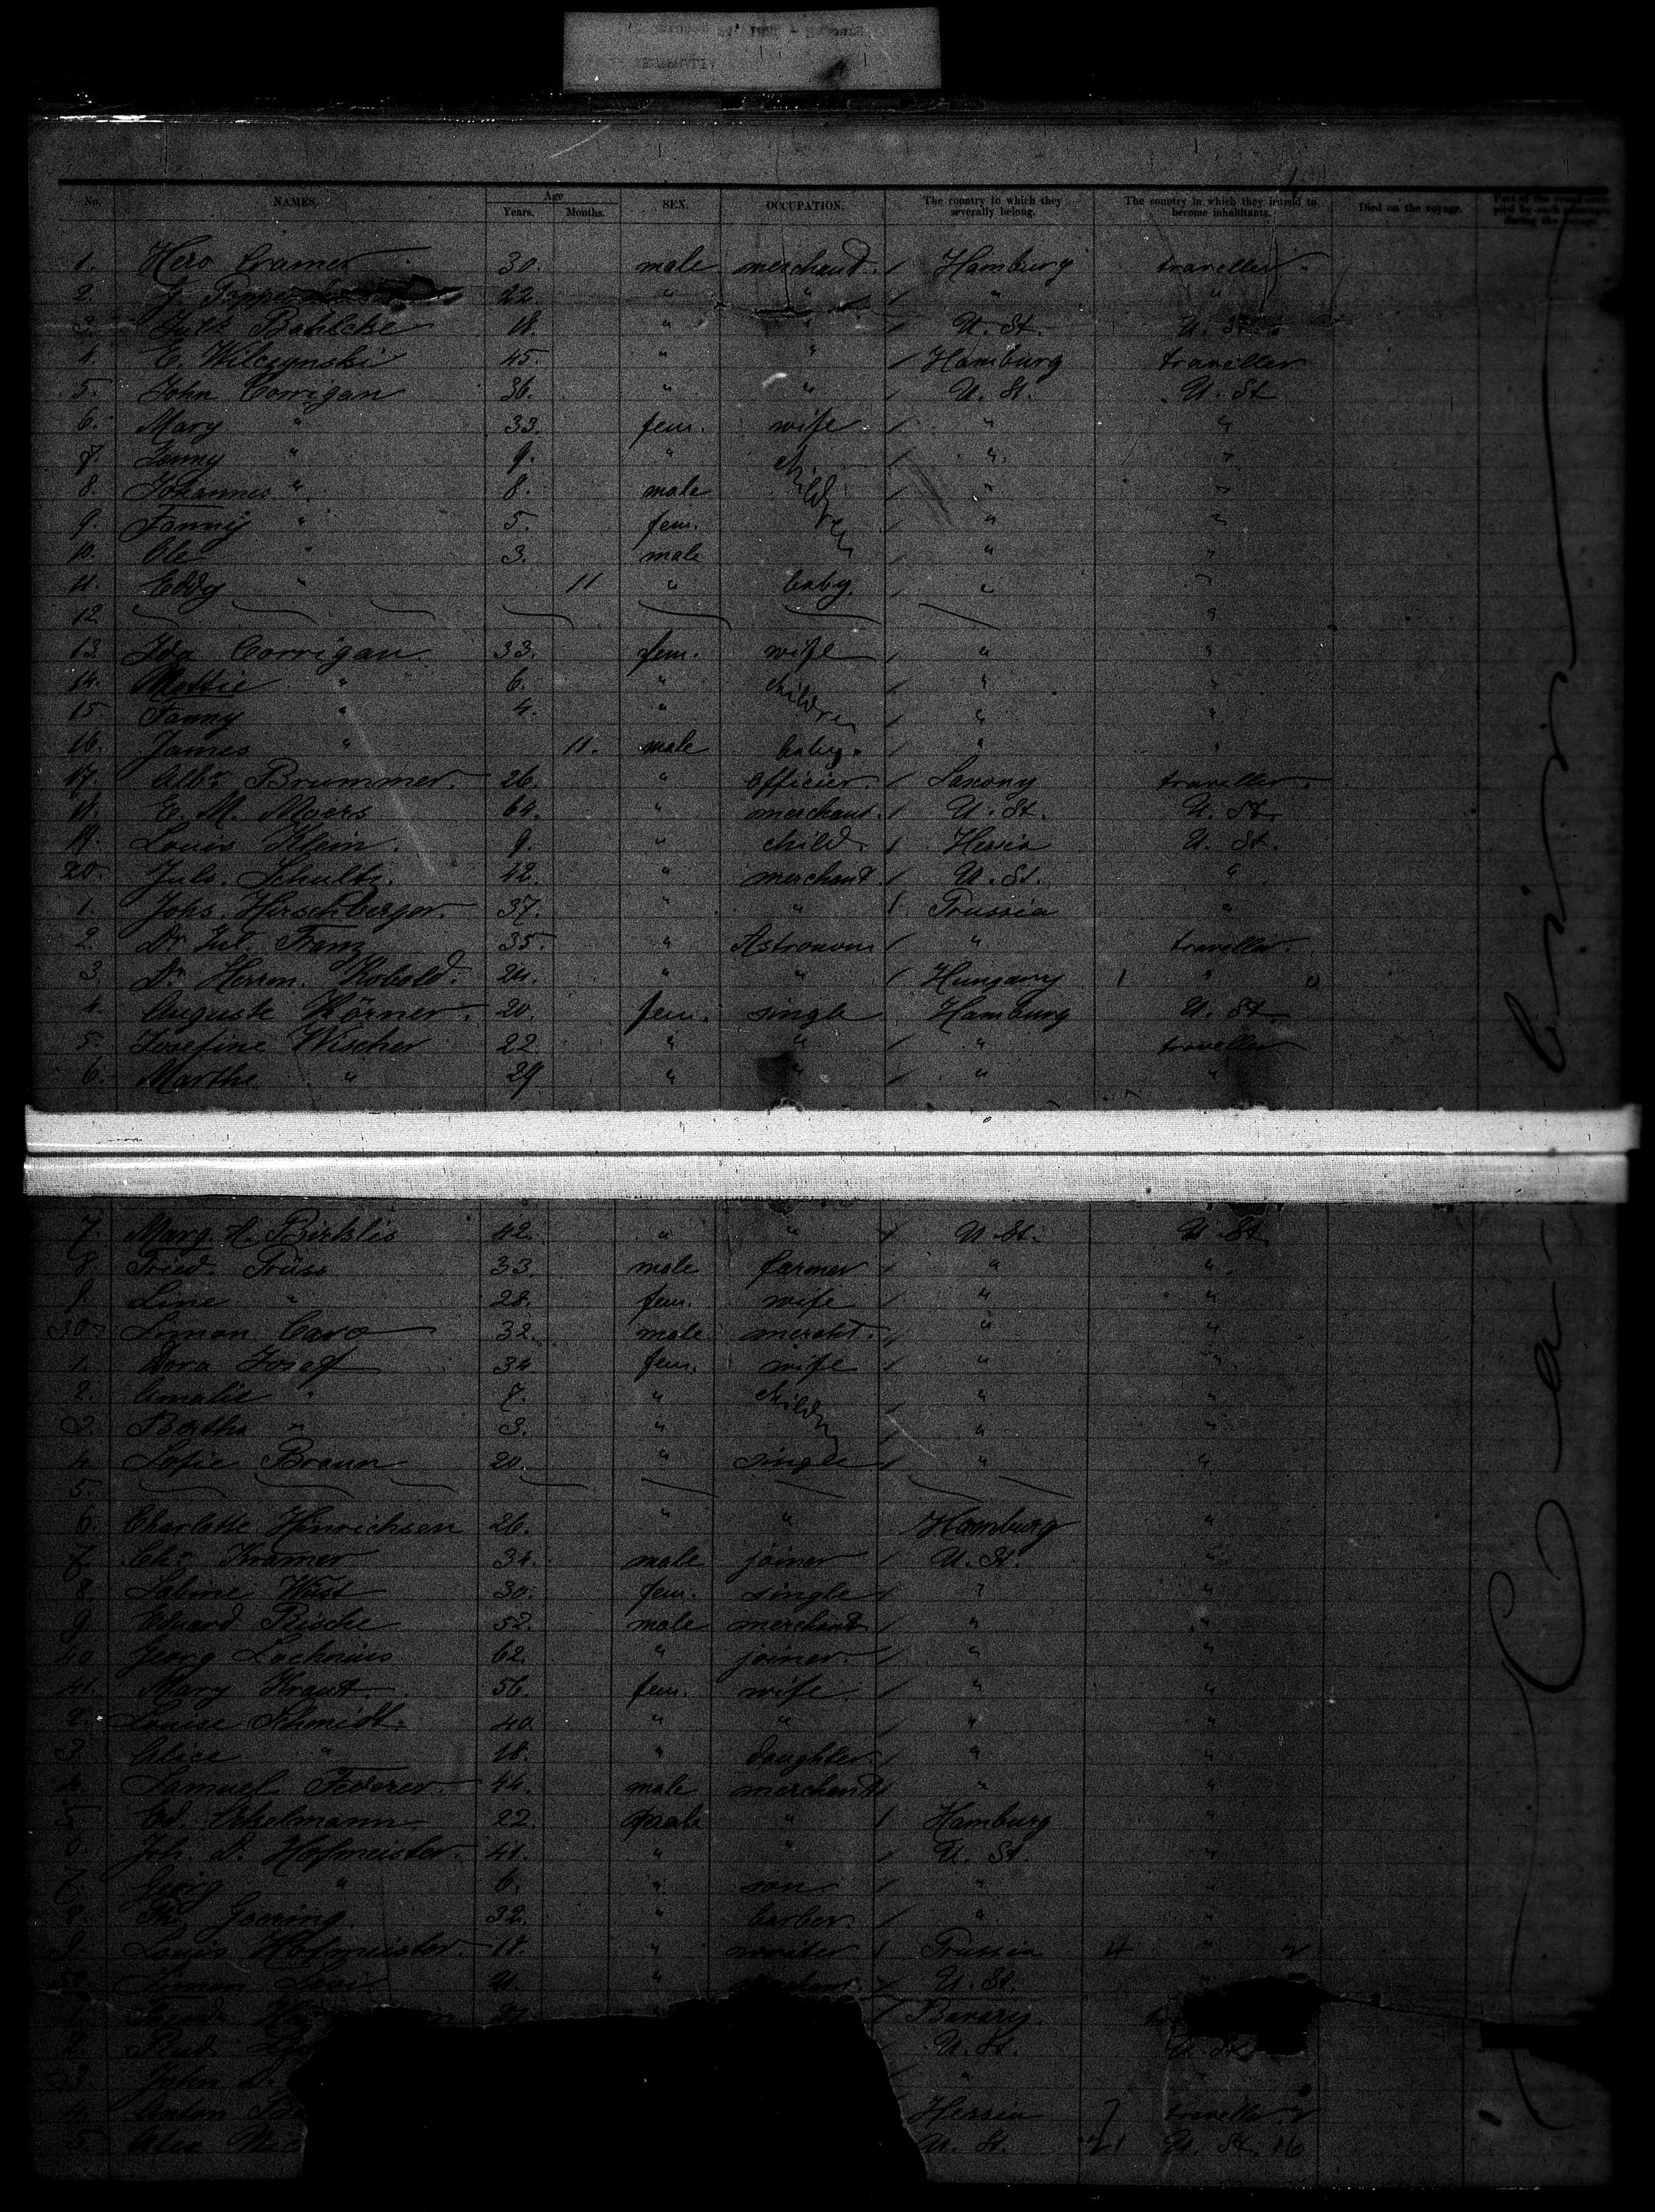 No. NAMES. Age Years. Months. SEX. OCCUPATION. The country to which they severally belong. The country in which they intend to become inhabitants. Died on the voyage. Part of the
1. Hero Cramer 30. male merchand. / Hamburg traveller
2. J. Popper 22. " " / " "
3. Juls Bahlcke 18. " " / U. St. U. St.
4. E. Wilczynski 45. " " / Hamburg traveller
5. John Corrigan 36. " " / U. St. U. St
6. Mary " 33. fem. wife / " "
7. Jenny " 9. " children / " "
8. Johannes " 8. male / " "
9. Fanny " 5. fem. / " "
10. Ole " 3. male / " "
11. Eddy " 11 " baby. / " "
12 "
13. Ida Corrigan. 33. fem. wife / " "
14. Mottie " 6. " children / " "
15 Fanny " 4. " / " "
16. James " 11. male baby. / " "
17. Albr. Brummer. 26. " Officier. / Saxony traveller.
18. E. M. Myers 64. " merchant. / U. St. U. St.
19. Louis Klein. 9. " child. / Hessia U. St.
20. Juls. Schultz. 42. " merchand / U. St. "
1. Johs. Hirschberger. 37. " " / Prussia "
2. Dr. Jul. Franz 35. " Astronom / " traveller.
3. Dr. Herrm. Kobold. 24. " " / Hungary 1 " 0
4. Auguste Körner. 20. fem. single Hamburg U. St.
5. Josefine Wischer 22 " " / " traveller
6. Marthe " 29 " " / " "
7. Marg. A. Birklis 42. " " / U. St. U. St
8 Fried. Trüss 33. male farmer / " "
9. Line " 28. fem. wife / " "
30. Simon Caro 32. male mercht. / " "
1. Dora Josef 34 fem. wife / " "
2. Amalie " 7. " childr / " "
3 Bertha " 3. " / " "
4. Sofie Braun 20. " single / " "
5
6. Charlotte Hinrichsen 26. " " / Hamburg "
7. Chr. Kramer 34. male joiner / U. St. "
8. Sabine Wüst 30. fem. single / " "
9. Eduard Rische 52. male merchand / " "
40 Georg Lochnius 62. " joiner. / " "
41. Mary Kraut. 56. fem. wife. / " "
2. Louise Schmidt. 40. " " / " "
3. Alice " 18. " daughter. / " "
4. Samuel Federer. 44. male merchand / " "
5. Ed. Akelmann 22. male " / Hamburg "
6. Joh. D. Hofmeister. 41. " " / U. St. "
7. Georg " 6. " son / " "
8. Th. Goering. 32. " barber. / " "
9. Louis Hofmeister. 18. " / Prussia 4 "
50 Simon Levi. " / U. St. "
1. / Bavary.
2. U. St. U. St.
3. John D. / "
4. Anton Hessia 7 traveller
5. Alex U. St. 21 U. St. 16
Cabin